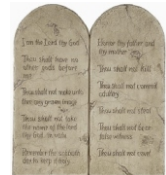 I am the Lord thy God
Thou shalt have no
other gods before.
Thou shalt not make unto
thee any graven image
Thou shalt not take
the name of the lord
thy God in vain
Remember the sabbath
day to keep it holy
Honor thy father and
thy mother
Thou shalt not kill
Thou shalt not commit
adultery
Thou shalt not steal
Thou shalt not bear
false witness
Thou shalt not covet